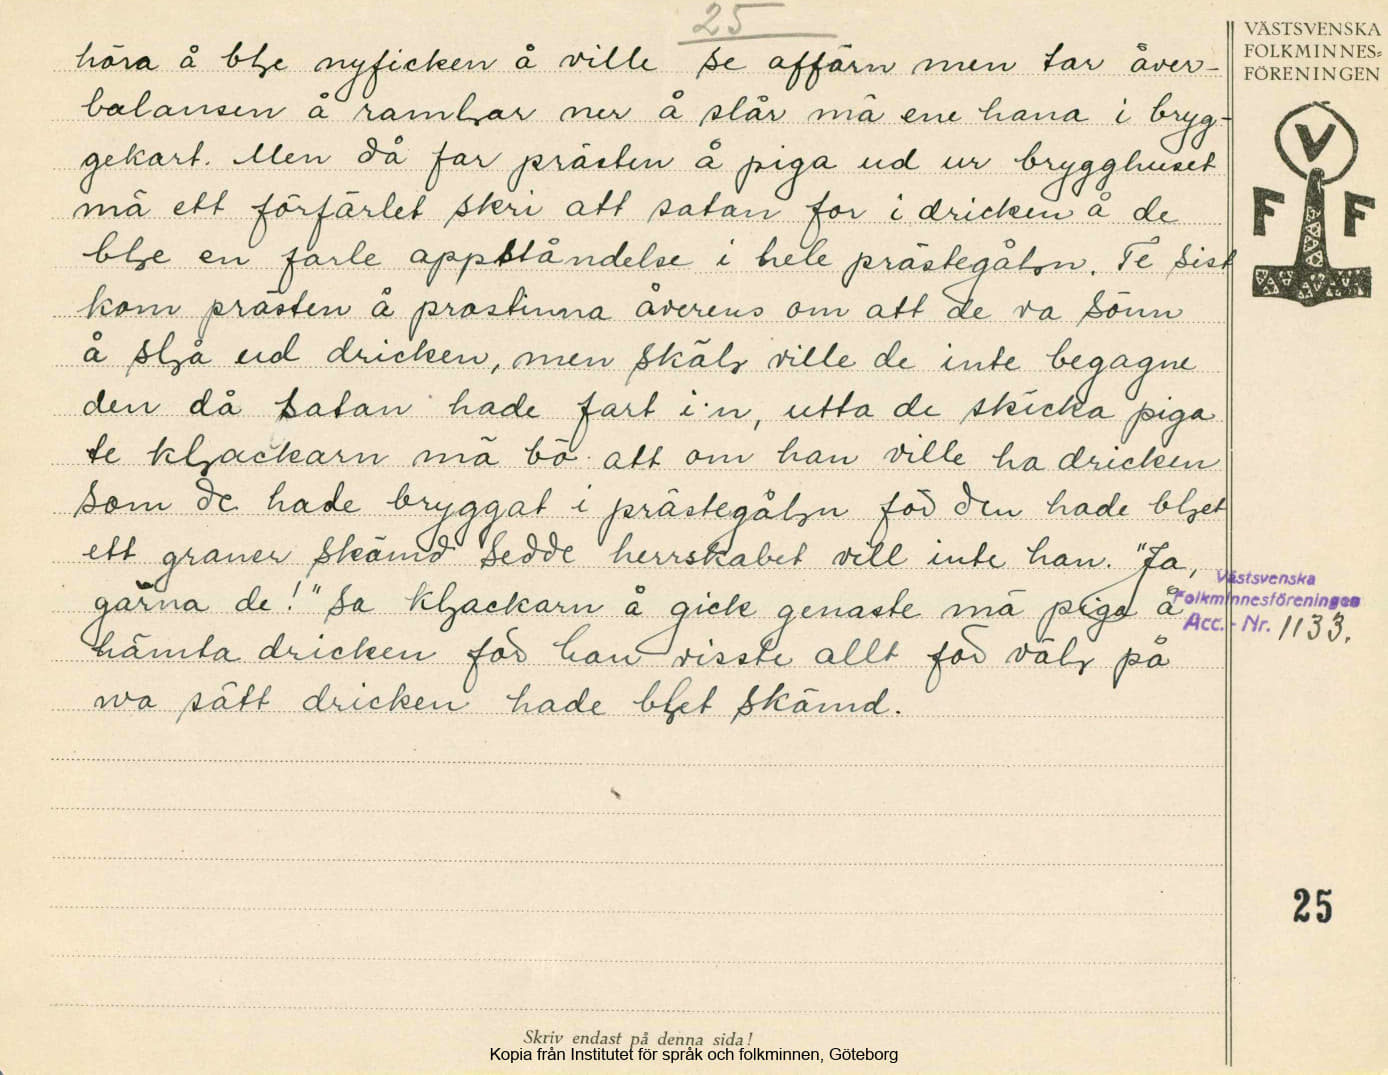 25
VÄSTSVENSKA
FOLKMINNES=
FÖRENINGEN
höra å błe nyficken å ville se affärn men tar åver-
balansen å ramłar ner å slår mä ene hana i bryg-
gekart. Men då far prästen å piga ud ur brygghuset
mä ett förfärlet skri att satan for i dricken å de
błe en farle appståndelse i hele prästegåłn. Te sist
kom prästen å prostinna åverens om att de va sönn
å słå ud dricken, men skäł ville de inte begagne
den då satan hade fart i'n, utta de skicka piga
te kłackarn mä bö att om han ville ha dricken
som de hade bryggat i prästegåłn föd den hade błet
ett graner skämd sedde herrskabet vill inte han. "Ja,
gärna de!" sa kłackarn å gick genaste mä piga å
hämta dricken föd han visste allt föd väł på
wa sätt dricken hade błet skämd.
V
F F
Västsvenska
Folkminnesföreningen
Acc. - Nr. 1133.
25
Skriv endast på denna sida!
Kopia från Institutet för språk och folkminnen, Göteborg